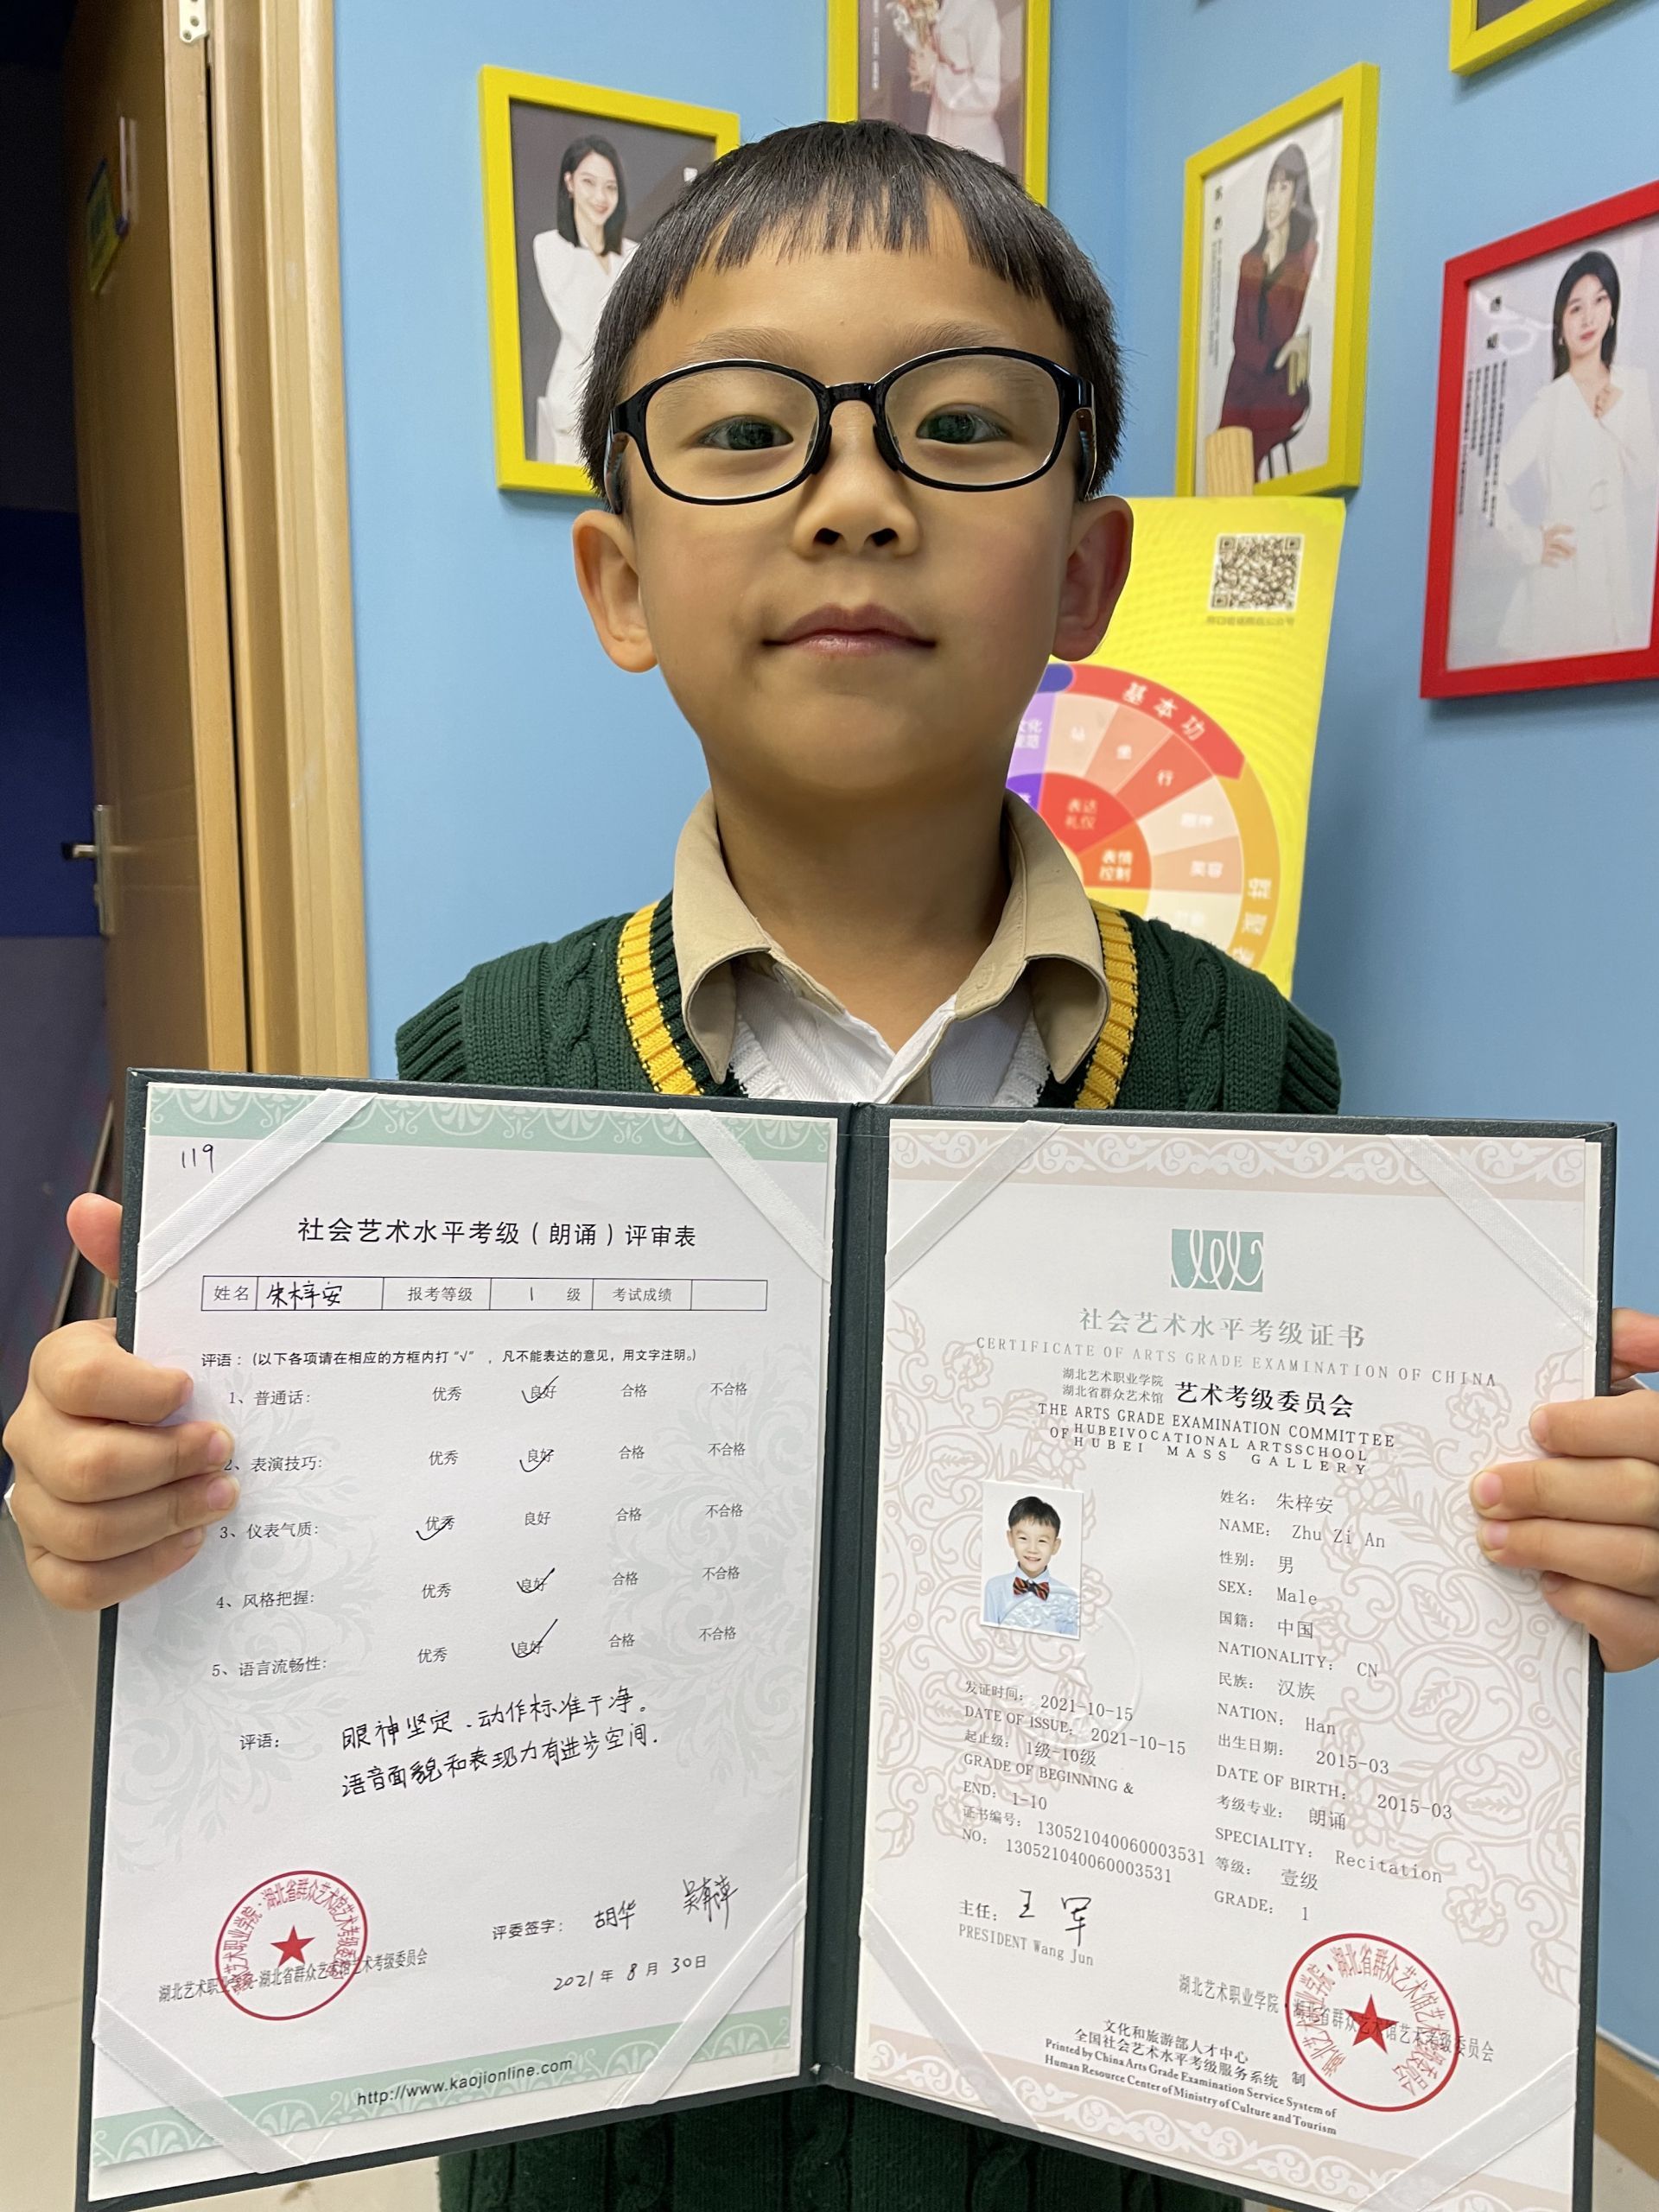 119
社会艺术水平考级（朗诵）评审表
姓名 朱梓安 报考等级 1 级 考试成绩
评语：(以下各项请在相应的方框内打“√”，凡不能表达的意见，用文字注明。)
1、普通话： 优秀 良好 合格 不合格
2、表演技巧： 优秀 良好 合格 不合格
3、仪表气质： 优秀 良好 合格 不合格
4、风格把握： 优秀 良好 合格 不合格
5、语言流畅性： 优秀 良好 合格 不合格
评语： 眼神坚定、动作标准干净。
语音面貌和表现力有进步空间.
评委签字： 胡华
湖北艺术职业学院·湖北省群众艺术馆艺术考级委员会
2021年 8月 30日
http://www.kaojionline.com
社会艺术水平考级证书
CERTIFICATE OF ARTS GRADE EXAMINATION OF CHINA
湖北艺术职业学院
湖北省群众艺术馆 艺术考级委员会
THE ARTS GRADE EXAMINATION COMMITTEE
OF HUBEIVOCATIONAL ARTSSCHOOL
HUBEI MASS GALLERY
姓名： 朱梓安
NAME： Zhu Zi An
性别： 男
SEX： Male
国籍： 中国
NATIONALITY： CN
民族： 汉族
NATION： Han
出生日期： 2015-03
DATE OF BIRTH： 2015-03
考级专业： 朗诵
SPECIALITY： Recitation
等级： 壹级
GRADE： 1
发证时间： 2021-10-15
DATE OF ISSUE： 2021-10-15
起止级： 1级-10级
GRADE OF BEGINNING &
END： 1-10
证书编号： 130521040060003531
NO： 130521040060003531
主任： 王军
PRESIDENT Wang Jun
湖北艺术职业学院·湖北省群众艺术馆艺术考级委员会
文化和旅游部人才中心
全国社会艺术水平考级服务系统 制
Printed by China Arts Grade Examination Service System of
Human Resource Center of Ministry of Culture and Tourism
基本功
站
坐
行
表达
礼仪
表情
控制